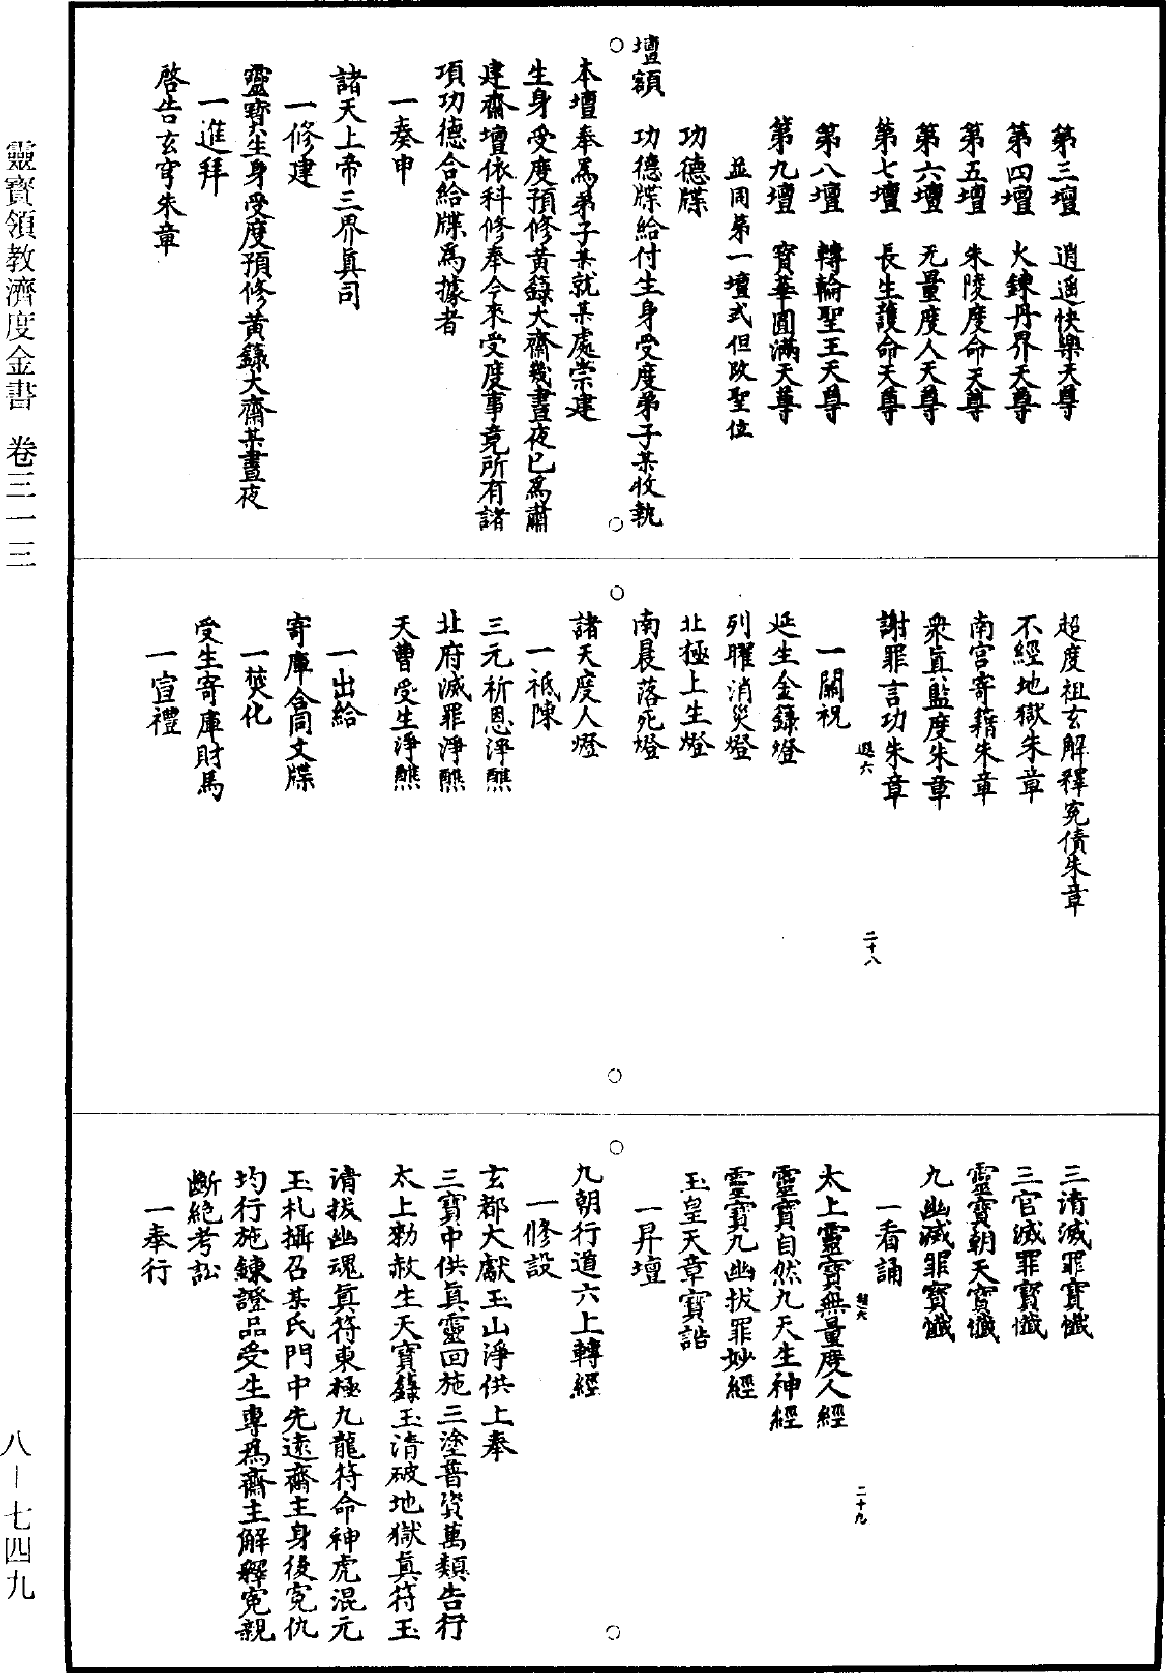 第三壇　逍遙快樂天尊
第四壇　火鍊丹界天尊
第五壇　朱陵度命天尊
第六壇　无量度人天尊
第七壇　長生護命天尊
第八壇　轉輪聖王天尊
第九壇　寳華圓滿天尊
並同第一壇式但改聖位
功德牒
壇額　功德牒給付生身受度弟子某收執
本壇奉爲弟子某就某處崇建
生身受度預修黃籙大齋幾晝夜已爲肅
建齋壇依科修奉今來受度事竟所有諸
項功德合給牒爲據者
一奏申
諸天上帝三界眞司
一修建
靈寳生身受度預修黃籙大齋某晝夜
一進拜
啓告玄穹朱章
超度祖玄解釋寃債朱章
不經地獄朱章
南宮寄籍朱章
衆眞監度朱章
謝罪言功朱章
退六　二十八
一關祝
延生金籙燈
列曜消災燈
北極上生燈
南晨落死燈
諸天度人燈
一祗陳
三元祈恩淨醮
北府滅罪淨醮
天曹受生淨醮
一出給
寄庫合同文牒
一焚化
受生寄庫財馬
一宣禮
三清滅罪寳懺
三官滅罪寳懺
靈寳朝天寳懺
九幽滅罪寳懺
一看誦
太上靈寳無量度人經
二十九
靈寳自然九天生神經
靈寳九幽拔罪妙經
玉皇天章寳誥
一昇壇
九朝行道六上轉經
一修設
玄都大獻玉山淨供上奉
三寳中供眞靈回施三塗普資萬類告行
太上勑赦生天寳籙玉清破地獄眞符玉
清拔幽魂眞符東極九龍符命神虎混元
玉札攝召某氏門中先遠齋主身後寃仇
均行施鍊證品受生專爲齋主解釋寃親
斷絕考訟
一奉行
靈寶領教濟度金書　卷三一三
八—七四九